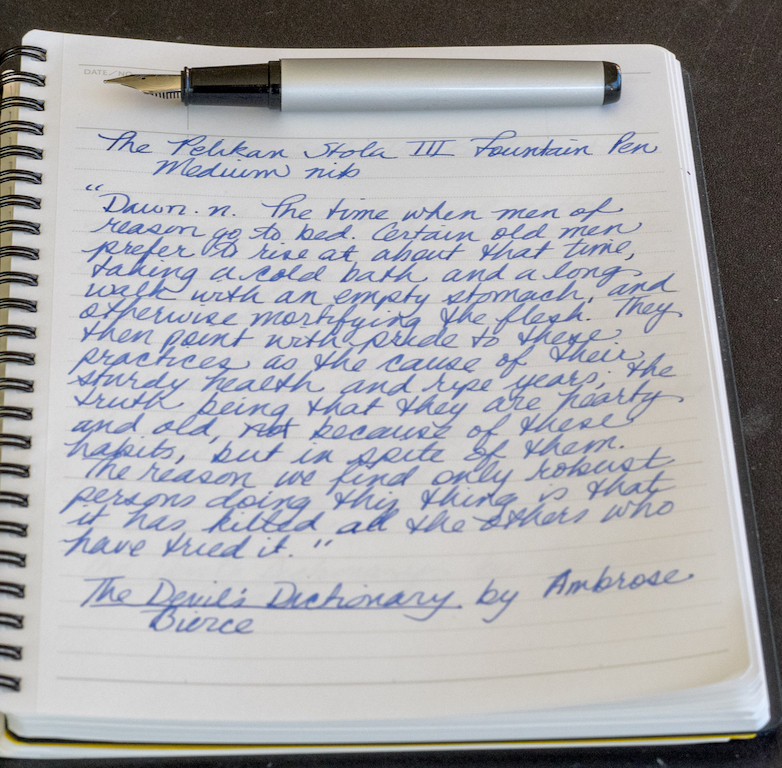 DATE/NO.
The Pelikan Stola III Fountain Pen
Medium nib
"Dawn. n. The time when men of
reason go to bed. Certain old men
prefer to rise at about that time,
taking a cold bath and a long
walk with an empty stomach, and
otherwise mortifying the flesh. They
then point with pride to these
practices as the cause of their
sturdy health and ripe years; the
truth being that they are hearty
and old, not because of these
habits, but in spite of them.
The reason we find only robust
persons doing this thing is that
it has killed all the others who
have tried it."
The Devil's Dictionary by Ambrose
Bierce